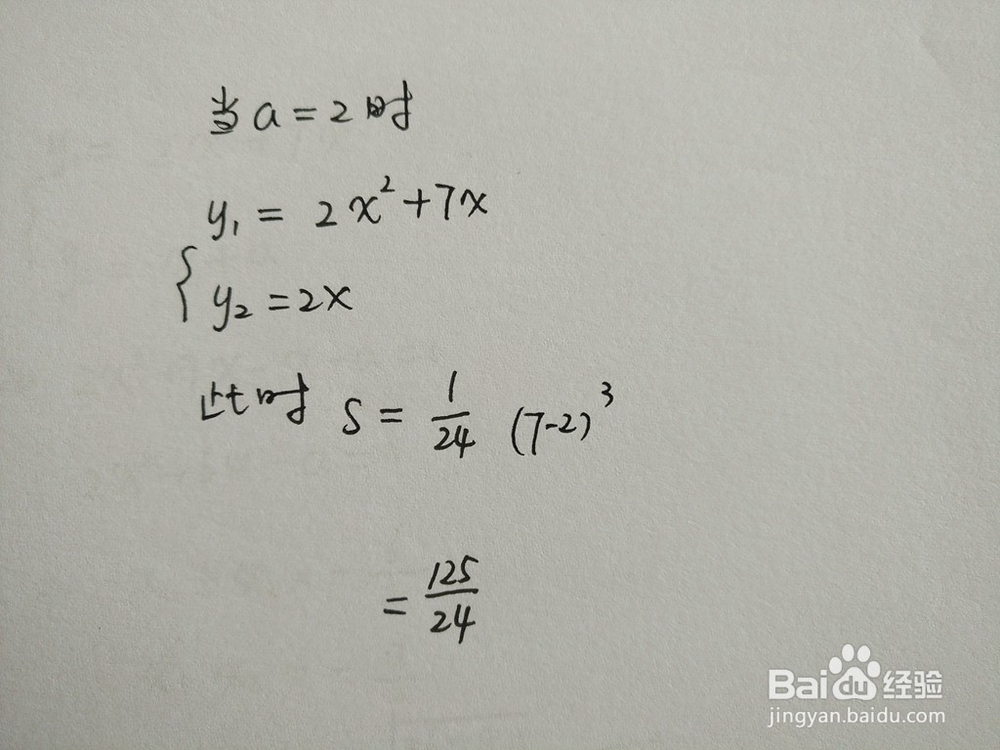 当a=2时
y₁ = 2x²+7x
y₂ =2x
此时 S= 1/24 (7-2)³
= 125/24
Baidu 经验
jingyan.baidu.com